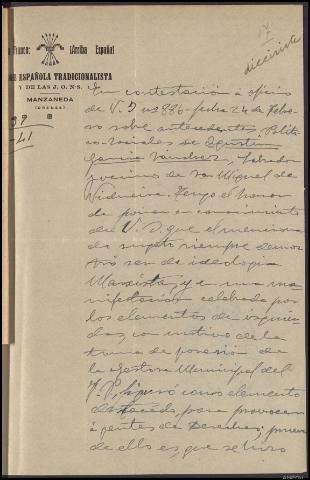 17
diecisiete
Franco: ¡Arriba España!
ESPAÑOLA TRADICIONALISTA
Y DE LAS J. O. N-S.
MANZANEDA
(ORENSE)
En contestación á oficio
de V. S nº 886 fecha 24 de Febre-
ro sobre antecedentes Políti-
co-sociales de Agustín
García Sánchez, labrador
y vecino de San Miguel de
Vidueira. Tengo el honor
de poner en conocimiento
de V. S. que el menciona
do sugeto siempre demos
tró ser de ideología
Marxista, y en una ma
nifestación celebrada por
los elementos de izquier
das, con motivo de la
toma de posesión de
la Gestora Municipal del
F. P. figuró como elemento
destacado, para provocar
á gentes de Derechas; prueba
de ello es, que se hizo